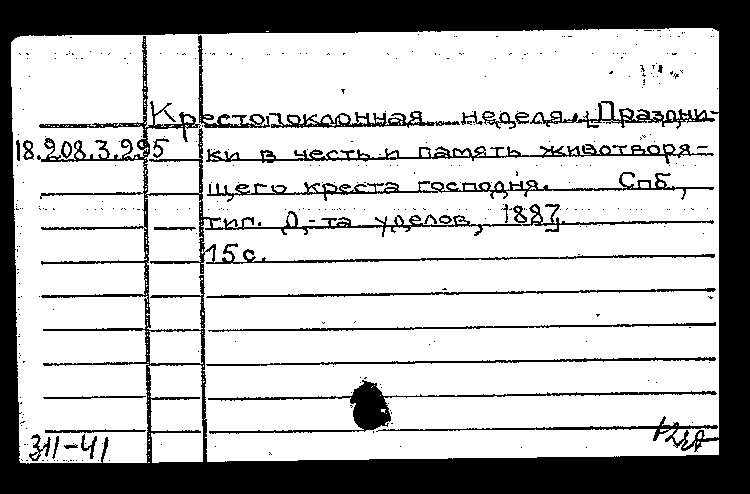 Крестопоклонная неделя. [Праздни-
18.208.3.295 ки в честь и память животворя-
щего креста господня. Спб,
тип. Д-та уделов, 1887].
15 с.
311-41